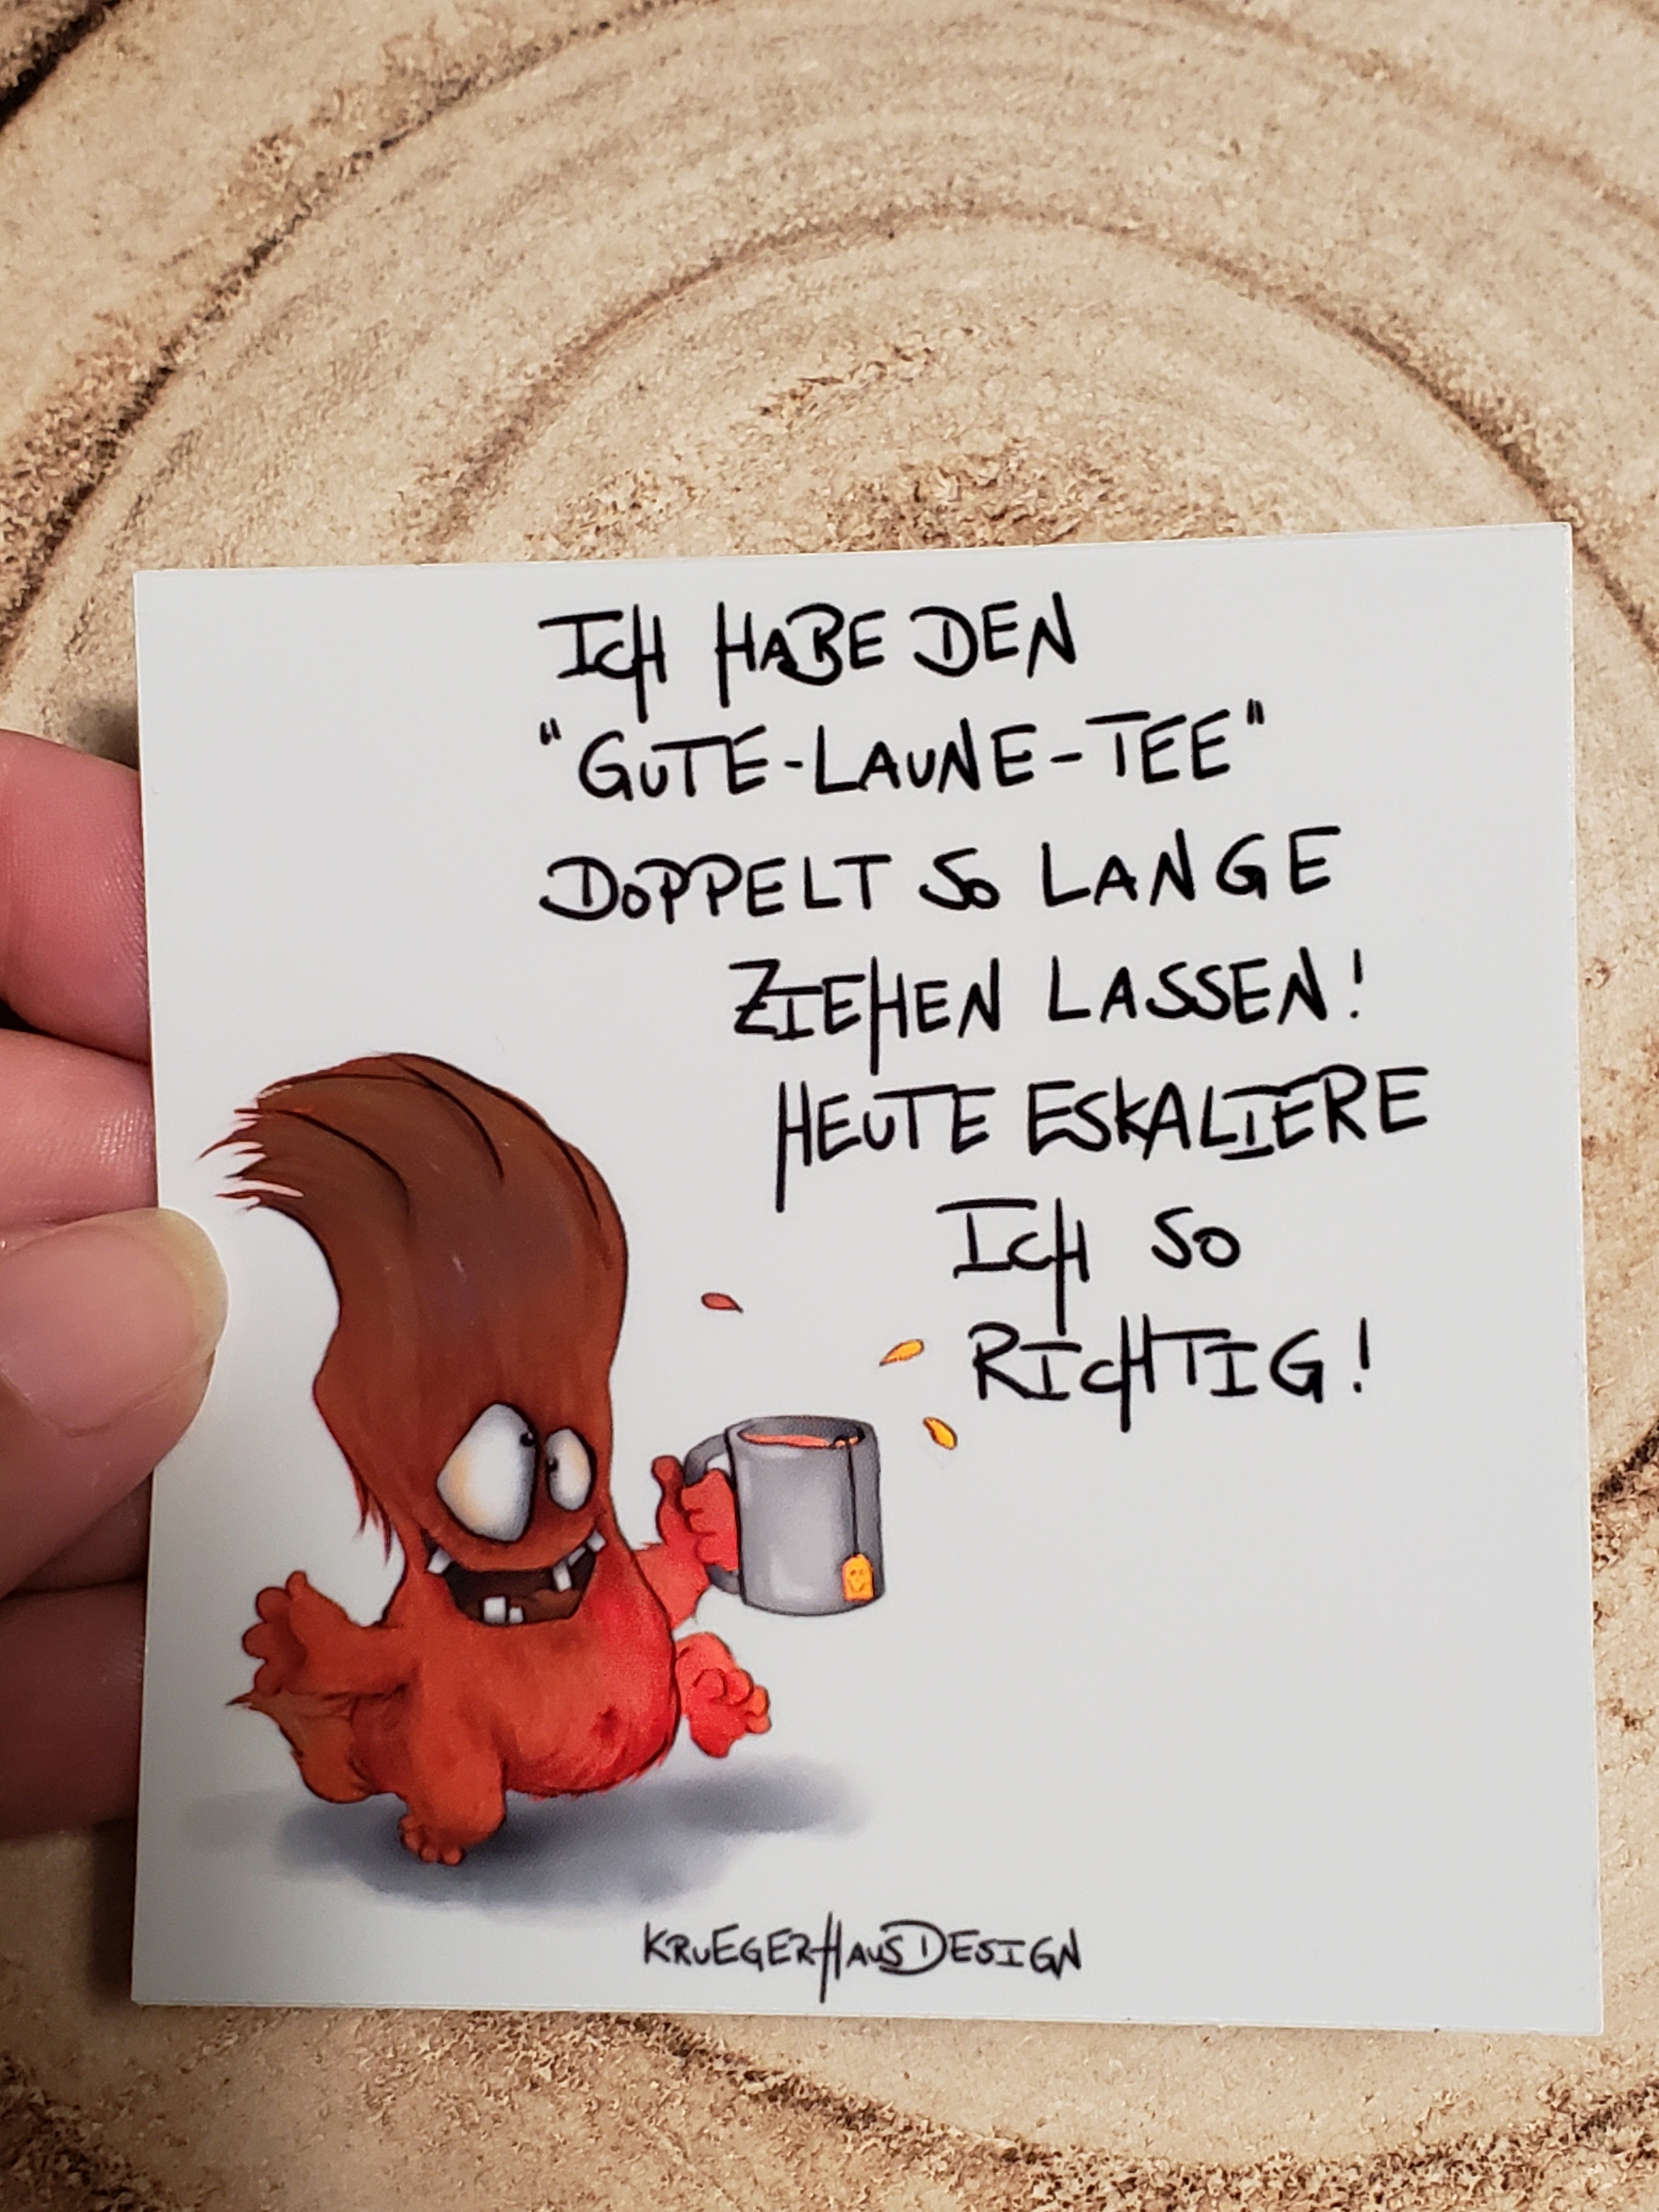 ICH HABE DEN
"GUTE-LAUNE-TEE"
DOPPELT SO LANGE
ZIEHEN LASSEN!
HEUTE ESKALIERE
ICH SO
RICHTIG!
KRUEGERHAUSDESIGN